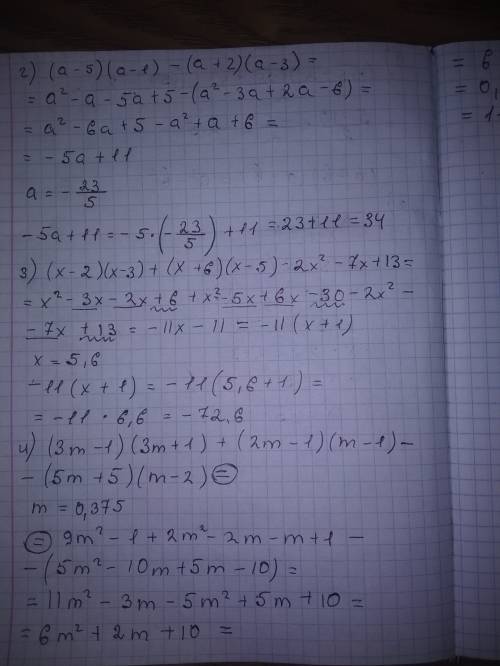 2) (a-5)(a-1) - (a+2)(a-3) =
= a² - a - 5a + 5 - (a² - 3a + 2a - 6) =
= a² - 6a + 5 - a² + a + 6 =
= - 5a + 11
a = - 23/5
-5a + 11 = -5 · (- 23/5) + 11 = 23 + 11 = 34
3) (x-2)(x-3) + (x+6)(x-5) - 2x² - 7x + 13 =
= x² - 3x - 2x + 6 + x² - 5x + 6x - 30 - 2x² -
- 7x + 13 = -11x - 11 = -11(x+1)
x = 5,6
-11(x+1) = -11(5,6+1) =
= -11 · 6,6 = -72,6
4) (3m-1)(3m+1) + (2m-1)(m-1) -
- (5m+5)(m-2) =
m = 0,375
= 9m² - 1 + 2m² - 2m - m + 1 -
- (5m² - 10m + 5m - 10) =
= 11m² - 3m - 5m² + 5m + 10 =
= 6m² + 2m + 10 =
= 6
= 0,
= 1